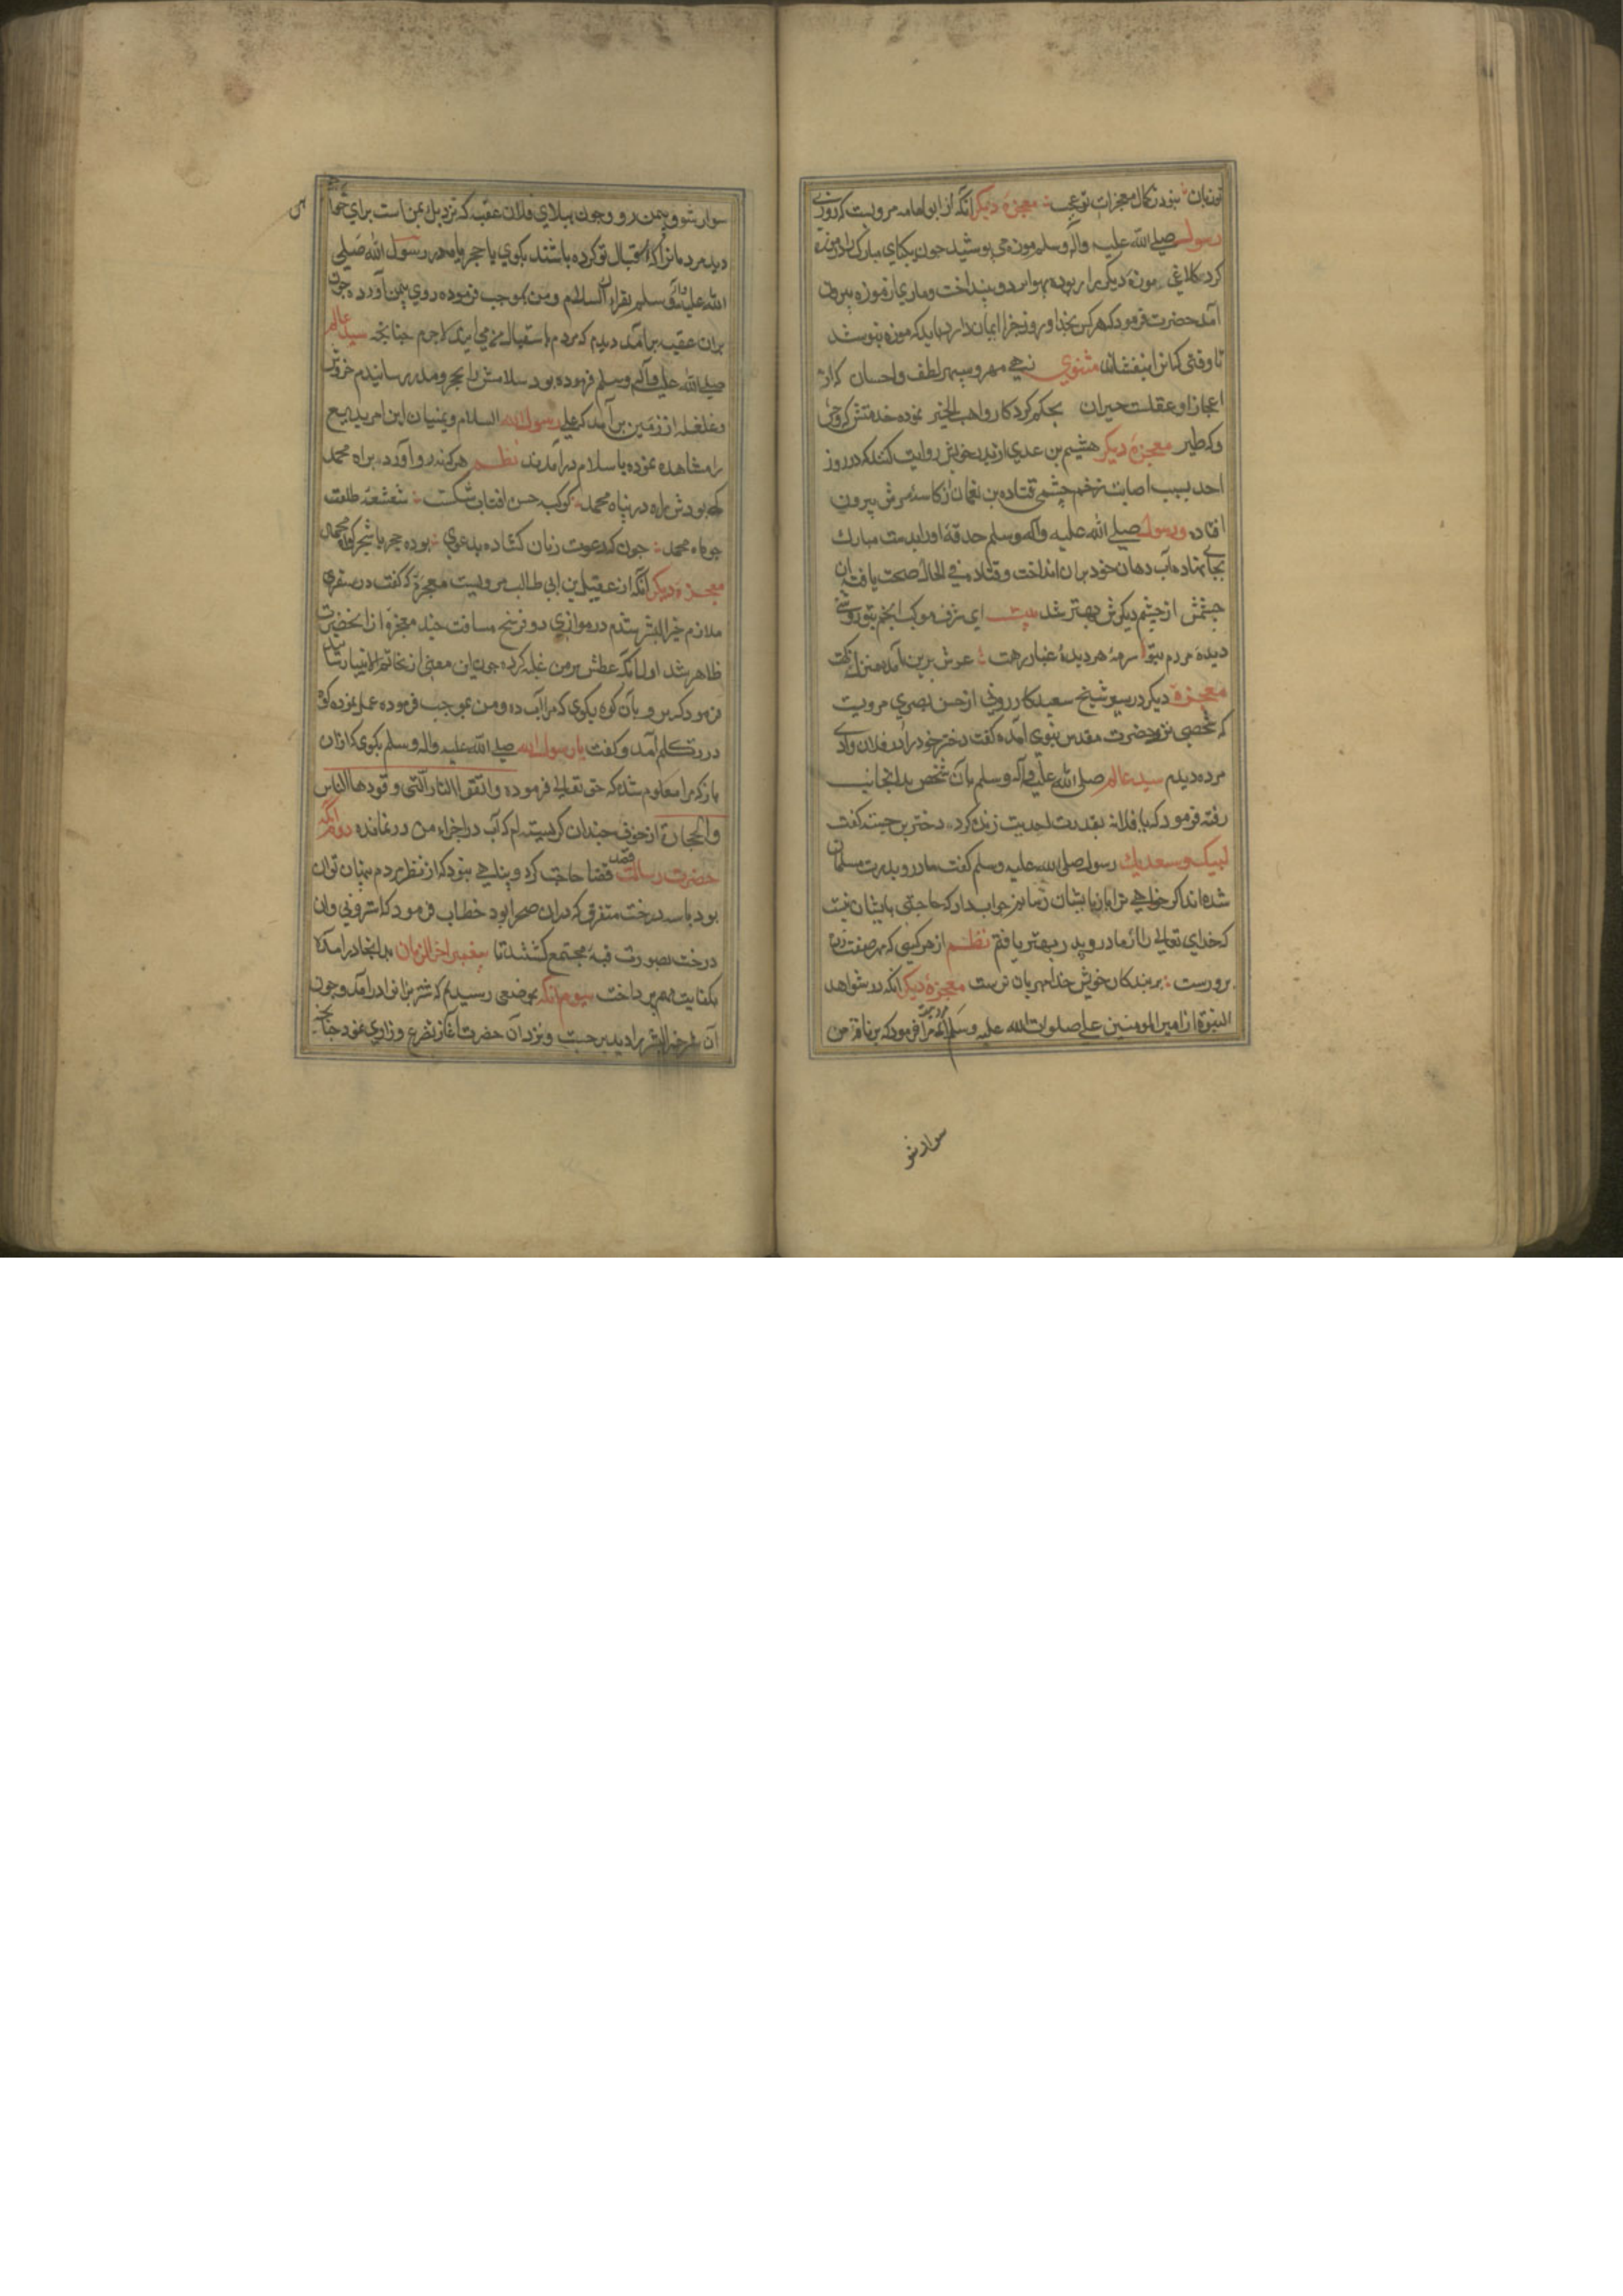 توزبان نبود ز کمال معجزات تو عجب معجزهٔ دیکر آنکه از ابو امامه مرویست که روزی
رسول صلی الله علیه وآله وسلم موزه می پوشید چون یکپای مبارک را در موزه
کرد کلاغی موزهٔ دیکر را ربوده بهوا برد و بینداخت و ماری از موزه بیرون
آمد حضرت فرمود که هر کس بخدا و روز جزا ایمان دارد باید که موزه نپوشد
تا وقتی که آنرا بیفشاند مثنوی زهی مهر و سپهر لطف و احسان که از
اعجاز او عقلست حیران بحکم کردکار واهب الخیر نموده خدمتش کر وحش
و که طیر معجزهٔ دیکر هشیم بن عدی از پدر خویش روایت کند که در روز
احد بسبب اصابت زخم چشم قتاده بن نعمان از کاسهٔ سرش بیرون
افتاد و رسول صلی الله علیه وآله وسلم حدقهٔ او را بدست مبارک
بجای نهاده آب دهان خود بر ان انداخت و قتاده فی الحال صحت یافته ان
چشمش از چشم دیکرش بهتر شد بیت ای شرف موکب انجم بتو روشنی
دیدهٔ مردم بتو سرمهٔ هر دیده غبار رهت عرش برین آمده منزلکهت
معجزهٔ دیکر در سیر شیخ سعید کازرونی از حسن بصری مرویست
که شخصی نزد حضرت مقدس نبوی آمده کفت دختر خود را در فلان وادی
مرده دیدم سید عالم صلی الله علیه وآله وسلم با آن شخص بدانجانب
رفته فرمود که یا فلانه بقدرت احدیت زنده کرد دختر برجست کفت
لبیک وسعدیک رسول صلی الله علیه وسلم کفت مادر و پدرت مسلمان
شده اند اکر خواهی ترا باز بایشان رسانم جواب داد که حاجتی بایشان نیست
که خدای تعالی را از مادر و پدر بهتر یافتم نظم از هر کسی که بهر صفت
پرورست بر بندکان خویش خدا مهربان ترست معجزهٔ دیکر آنکه در شواهد
النبوة از امیر المومنین علی صلوات الله علیه وسلم آنکه مرا فرمود که بر ناقهٔ من
سوار شو
سوار شو و بیمن رو و چون ببلای فلان عقبه که نزدیک بیمن است برآی
دید مردمانرا که استقبال تو کرده باشند بکوی یا حجر یا مدر رسول الله صلی
الله علیه وآله وسلم یقراءک السلام و من بموجب فرموده روی بیمن آورده چون
بران عقبه برآمدم دیدم که مردم باستقبال من می ایند لاجرم چنانچه سید عالم
صلی الله علیه وآله وسلم فرموده بود سلامش را بحجر و مدر رسانیدم خروش
و غلغله از زمین برآمد که علی رسول الله السلام و یمنیان این امر بدیع
را مشاهده نموده باسلام درآمدند نظم هر که نه رو آورد براه محمد
کی بودش راه در پناه محمد کوکب حسن افتاب شکست شعشعهٔ طلعت
چو ماه محمد چون که بدعوت زبان کشاده بدعوی بوده حجر یا شجر کواه محمد
معجزهٔ دیکر آنکه از عقیل بن ابی طالب مرویست معجزهٔ که کفت در سفری
ملازم خیر البشر شدم در موازی دو فرسخ مسافت چند معجزه از انحضرت
ظاهر شد اول آنکه عطش بر من غلبه کرده چون این معنی از خاتم الانبیا
فرمود که برو بآن کوه بکوی که مرا آب ده و من بموجب فرموده عمل نموده کوه
در تکلم آمد و کفت یا رسول الله صلی الله علیه واله وسلم بکوی که ازان
باز که مرا معلوم شد که حق تعالی فرموده واتقوا النار التی وقودها الناس
والحجارة از خوف چندان کریسته ام که آب در اجزاء من در نمانده دوم آنکه
حضرت رسالت قصد قضا حاجت کرد و پناهی نبود که از نظر مردم پنهان توان
بود با سه درخت متفرق که دران صحرا بود خطاب فرمود که وان
درخت بصورت قبه مجتمع کشتند تا پیغمبر اخر الزمان بدانجا درامده
بکفایت مهم پرداخت سیوم آنکه بموضعی رسیدیم که شتر بزانو درآمد و چون
آن خیر البشر را دید برجست و نزد آن حضرت آغاز تضرع و زاری نمود چنانچه